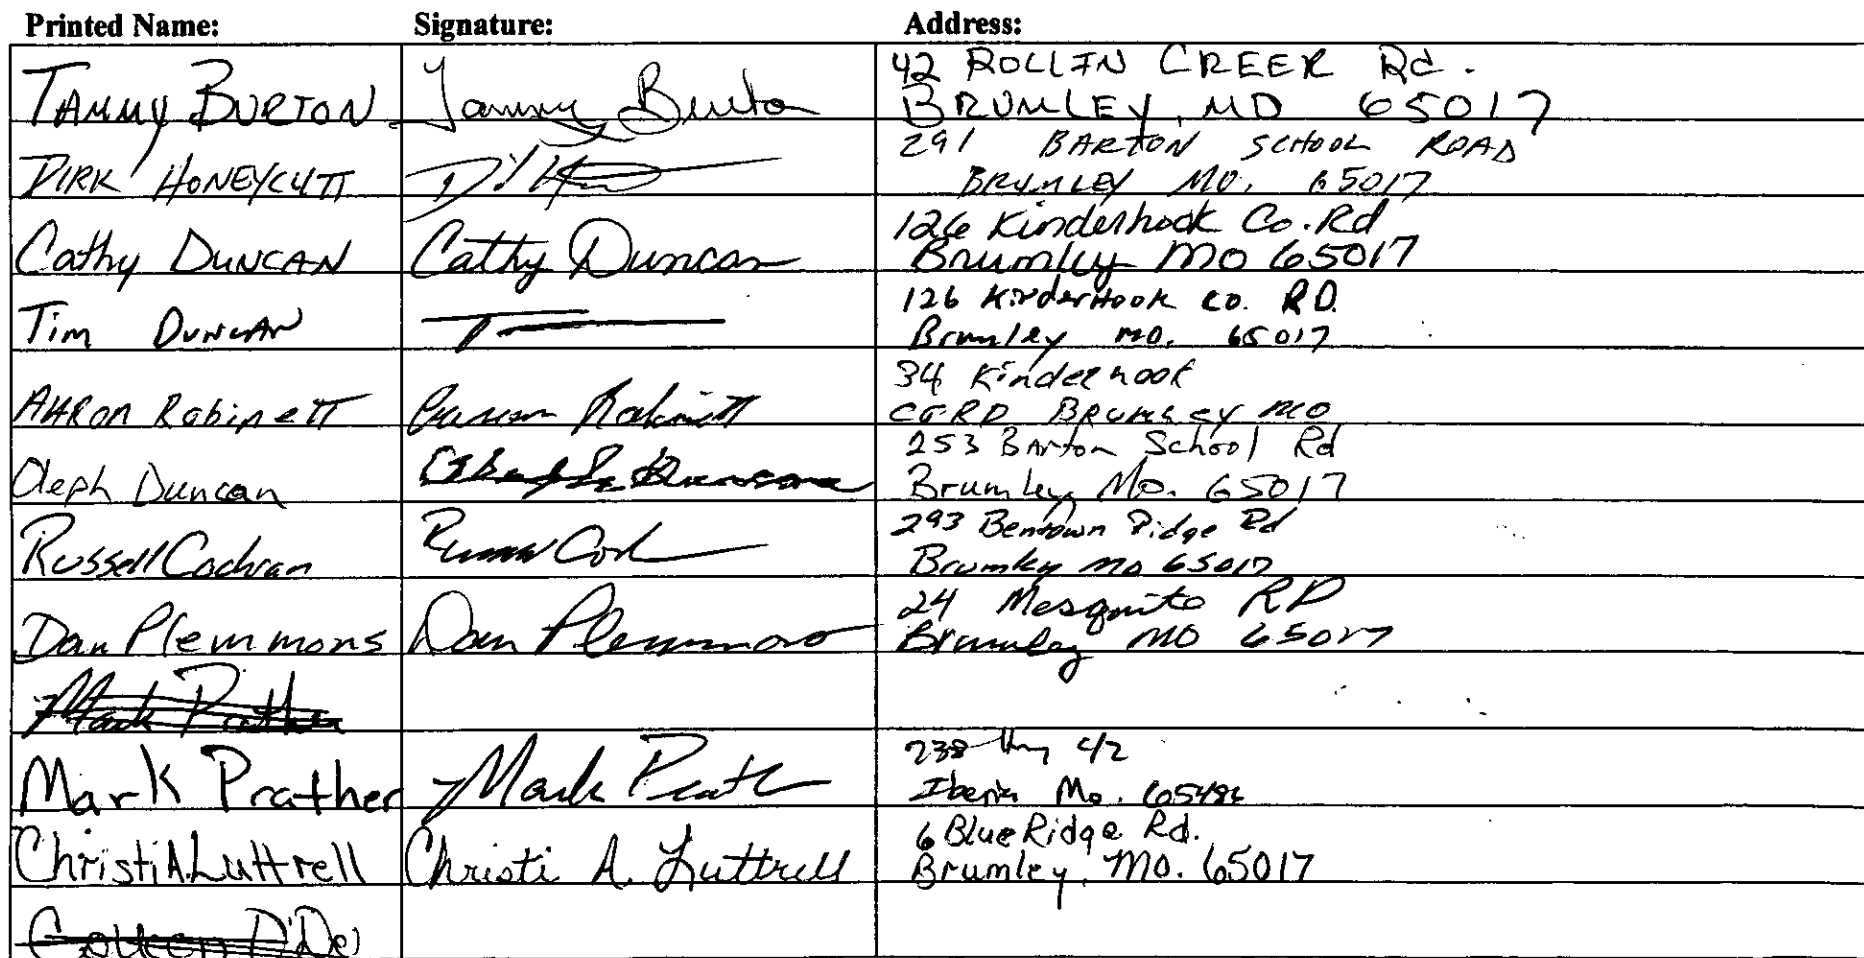 Printed Name: Signature: Address:
TAMMY BURTON Tammy Burton 42 ROLLIN CREEK Rd.
BRUMLEY, MO 65017
DIRK HONEYCUTT 291 BARTON SCHOOL ROAD
BRUMLEY MO. 65017
Cathy DUNCAN Cathy Duncan 126 Kinderhook Co. Rd
Brumley MO 65017
Tim DUNCAN 126 KinderHook CO. RD.
Brumley MO. 65017
AARON Robinett Robinett 34 Kinderhook
CO RD BRUMLEY MO
Oleph Duncan Duncan 253 Barton School Rd
Brumley, Mo. 65017
Russell Cochran 293 Bentown Ridge Rd
Brumley Mo 65017
Dan Plemmons Dan Plemmons 24 Mesquito RD
Brumley MO 65017
Mark Prather
Mark Prather Mark Prather 238 Hwy 42
Iberia Mo. 65486
Christi A. Luttrell Christi A. Luttrell 6 Blue Ridge Rd.
Brumley, Mo. 65017